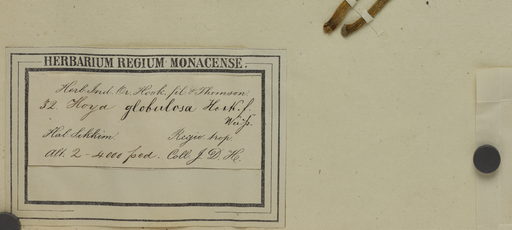 HERBARIUM REGIUM MONACENSE.
Herb. Ind. Or. Hook. fil. & Thomson
52 Hoya globulosa Hook. f.
Hab. Sikkim Regio trop.
Alt. 2-4000 ped. Coll. J. D. H.